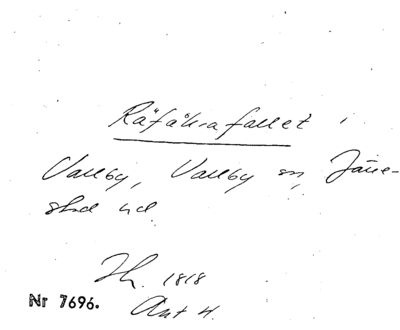 Räfåkrafallet i
Vallby, Vallby sn, Järre-
stad hd
Th. 1818
Nr 7696.
Ant 4.